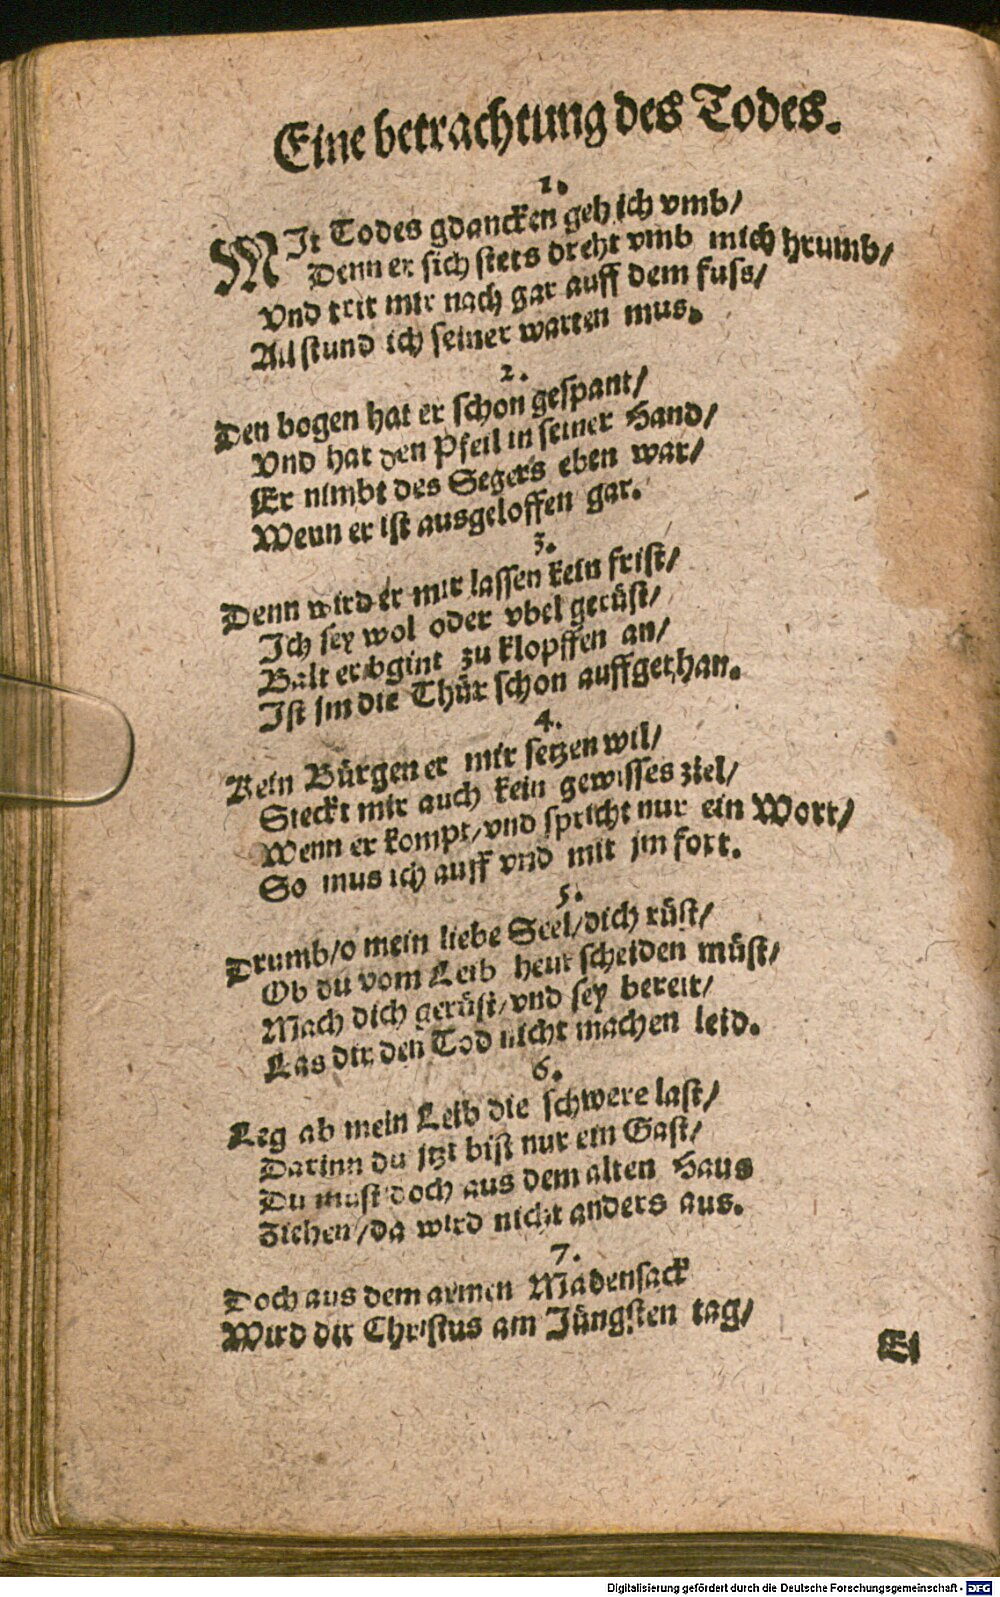 Eine betrachtung des Todes.
1.
MIt Todes gdancken geh ich vmb/
Denn er sich stets dreht vmb mich hrumb/
Vnd trit mir nach gar auff dem fuss/
All stund ich seiner warten mus.
2.
Den bogen hat er schon gespant/
Vnd hat den Pfeil in seiner Hand/
Er nimbt des Segers eben war/
Wenn er ist ausgeloffen gar.
3.
Denn wird er mir lassen kein frist/
Ich sey wol oder vbel gerüst/
Balt er bgint zu klopffen an/
Ist jm die Thür schon auffgethan.
4.
Kein Bürgen er mir setzen wil/
Steckt mir auch kein gewisses ziel/
Wenn er kompt/vnd spricht nur ein Wort/
So mus ich auff vnd mit jm fort.
5.
Drumb/o mein liebe Seel/dich rüst/
Ob du vom Leib heut scheiden müst/
Mach dich gerüst/vnd sey bereit/
Las dir den Tod nicht machen leid.
6.
Leg ab mein Leib die schwere last/
Darinn du jtzt bist nur ein Gast/
Du must doch aus dem alten Haus
Ziehen/da wird nicht anders aus.
7.
Doch aus dem armen Madensack
Wird dir Christus am Jüngsten tag/
Ei
Digitalisierung gefördert durch die Deutsche Forschungsgemeinschaft - DFG